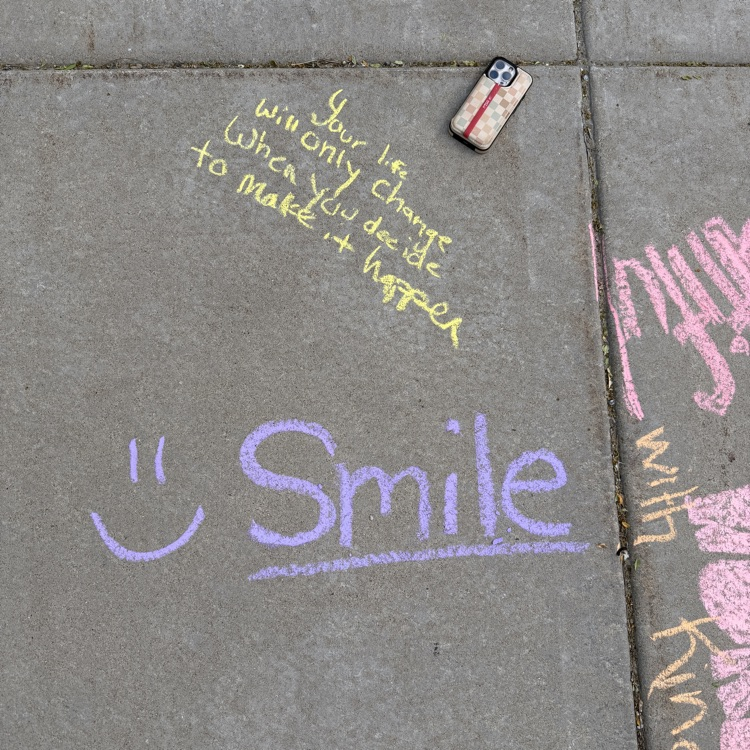 Your life
will only change
When you decide
to make it happen
Smile
with